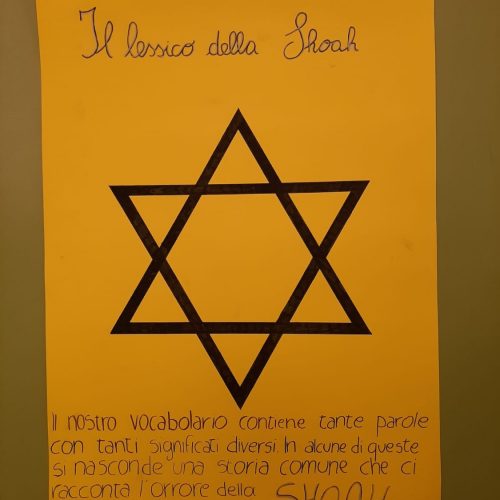 Il lessico della Shoah
Il nostro vocabolario contiene tante parole
con tanti significati diversi. In alcune di queste
si nasconde una storia comune che ci
racconta l'orrore della SHOAH